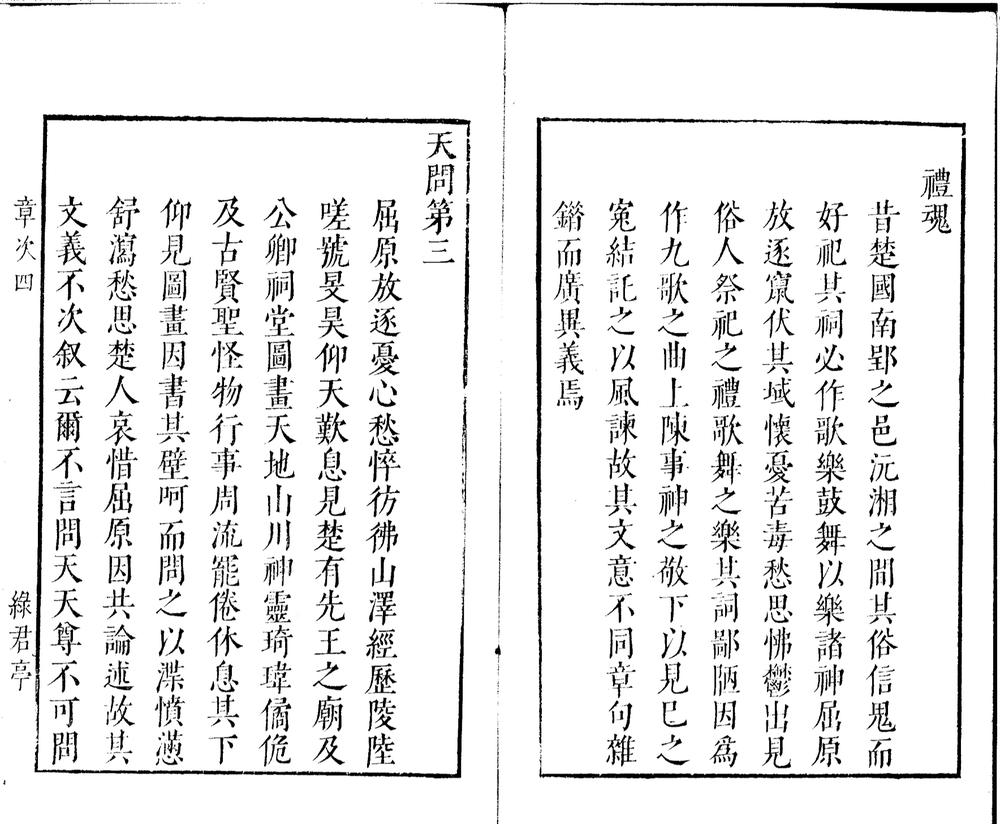 禮魂
昔楚國南郢之邑沅湘之間其俗信鬼而
好祀其祠必作歌樂鼓舞以樂諸神屈原
放逐竄伏其域懷憂苦毒愁思怫鬱出見
俗人祭祀之禮歌舞之樂其詞鄙陋因爲
作九歌之曲上陳事神之敬下以見巳之
寃結託之以風諫故其文意不同章句雜
錯而廣異義焉
天問第三
屈原放逐憂心愁悴彷彿山澤經歷陵陸
嗟號旻昊仰天歎息見楚有先王之廟及
公卿祠堂圖畫天地山川神靈琦瑋僑佹
及古賢聖怪物行事周流罷倦休息其下
仰見圖畫因書其壁呵而問之以渫憤懣
舒瀉愁思楚人哀惜屈原因共論述故其
文義不次叙云爾不言問天天尊不可問
章次四
綠君亭